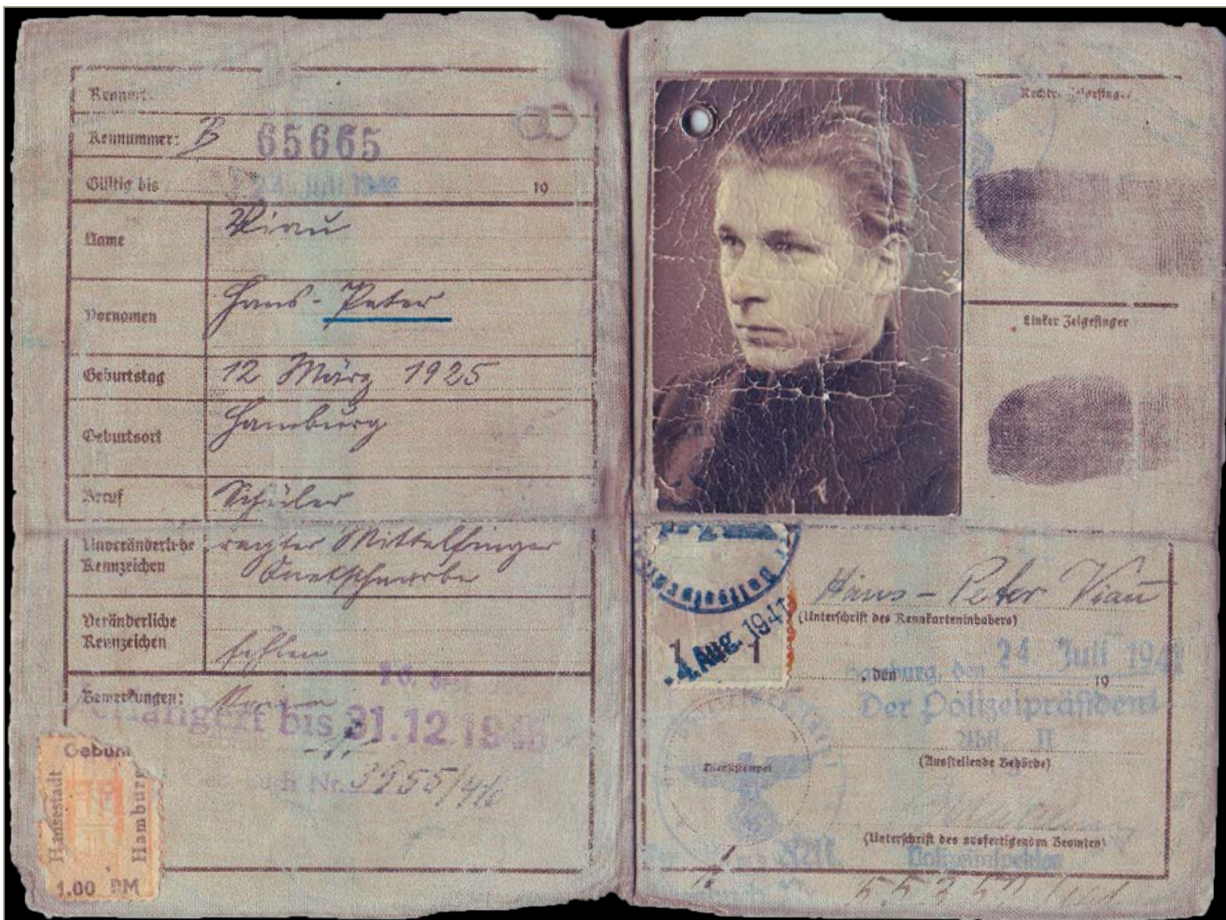 Kennort:
Kennummer: B 65665
Gültig bis 24. Juli 194 19
Name Viau
Vornamen Hans-Peter
Geburtstag 12 März 1925
Geburtsort Hamburg
Beruf Schüler
Unveränderliche Kennzeichen rechter Mittelfinger
Veränderliche Kennzeichen fehlen
Bemerkungen: Keine
verlängert bis 31.12.194
Nr. 3955/46
Gebühr
Hansestadt
Hamburg
1.00 RM
Rechter Zeigefinger
Linker Zeigefinger
4. Aug. 1941
1 1
Hans-Peter Viau
(Unterschrift des Kennkarteninhabers)
Hamburg, den 24. Juli 1941
, den 19
Der Polizeipräsident
Abt. II
(Ausstellende Behörde)
Dienststempel
(Unterschrift des ausfertigenden Beamten)